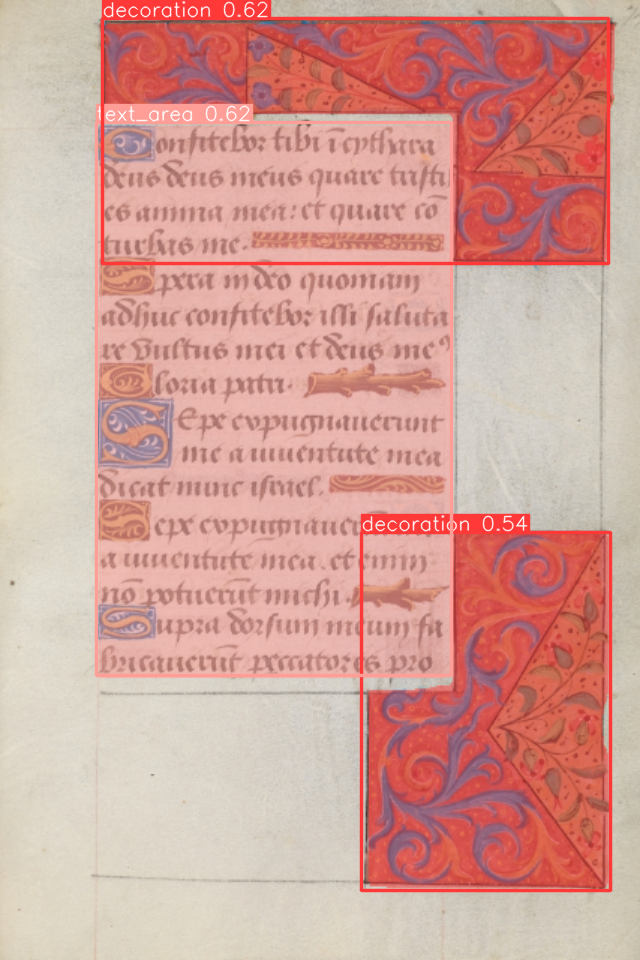 decoration 0.62
text_area 0.62
Confitebor tibi ī cythara
deus deus meus quare tristi
es anima mea: et quare cō
turbas me.
Spera in deo quoniam
adhuc confitebor illi saluta
re vultus mei et deus meꝰ
Gloria patri.
Sepe expugnauerunt
me a iuuentute mea
dicat nunc israel.
Sepe expugnauer
decoration 0.54
a iuuentute mea. etenim
nō potuerūt michi
Supra dorsum meum fa
bricauerūt peccatores pro